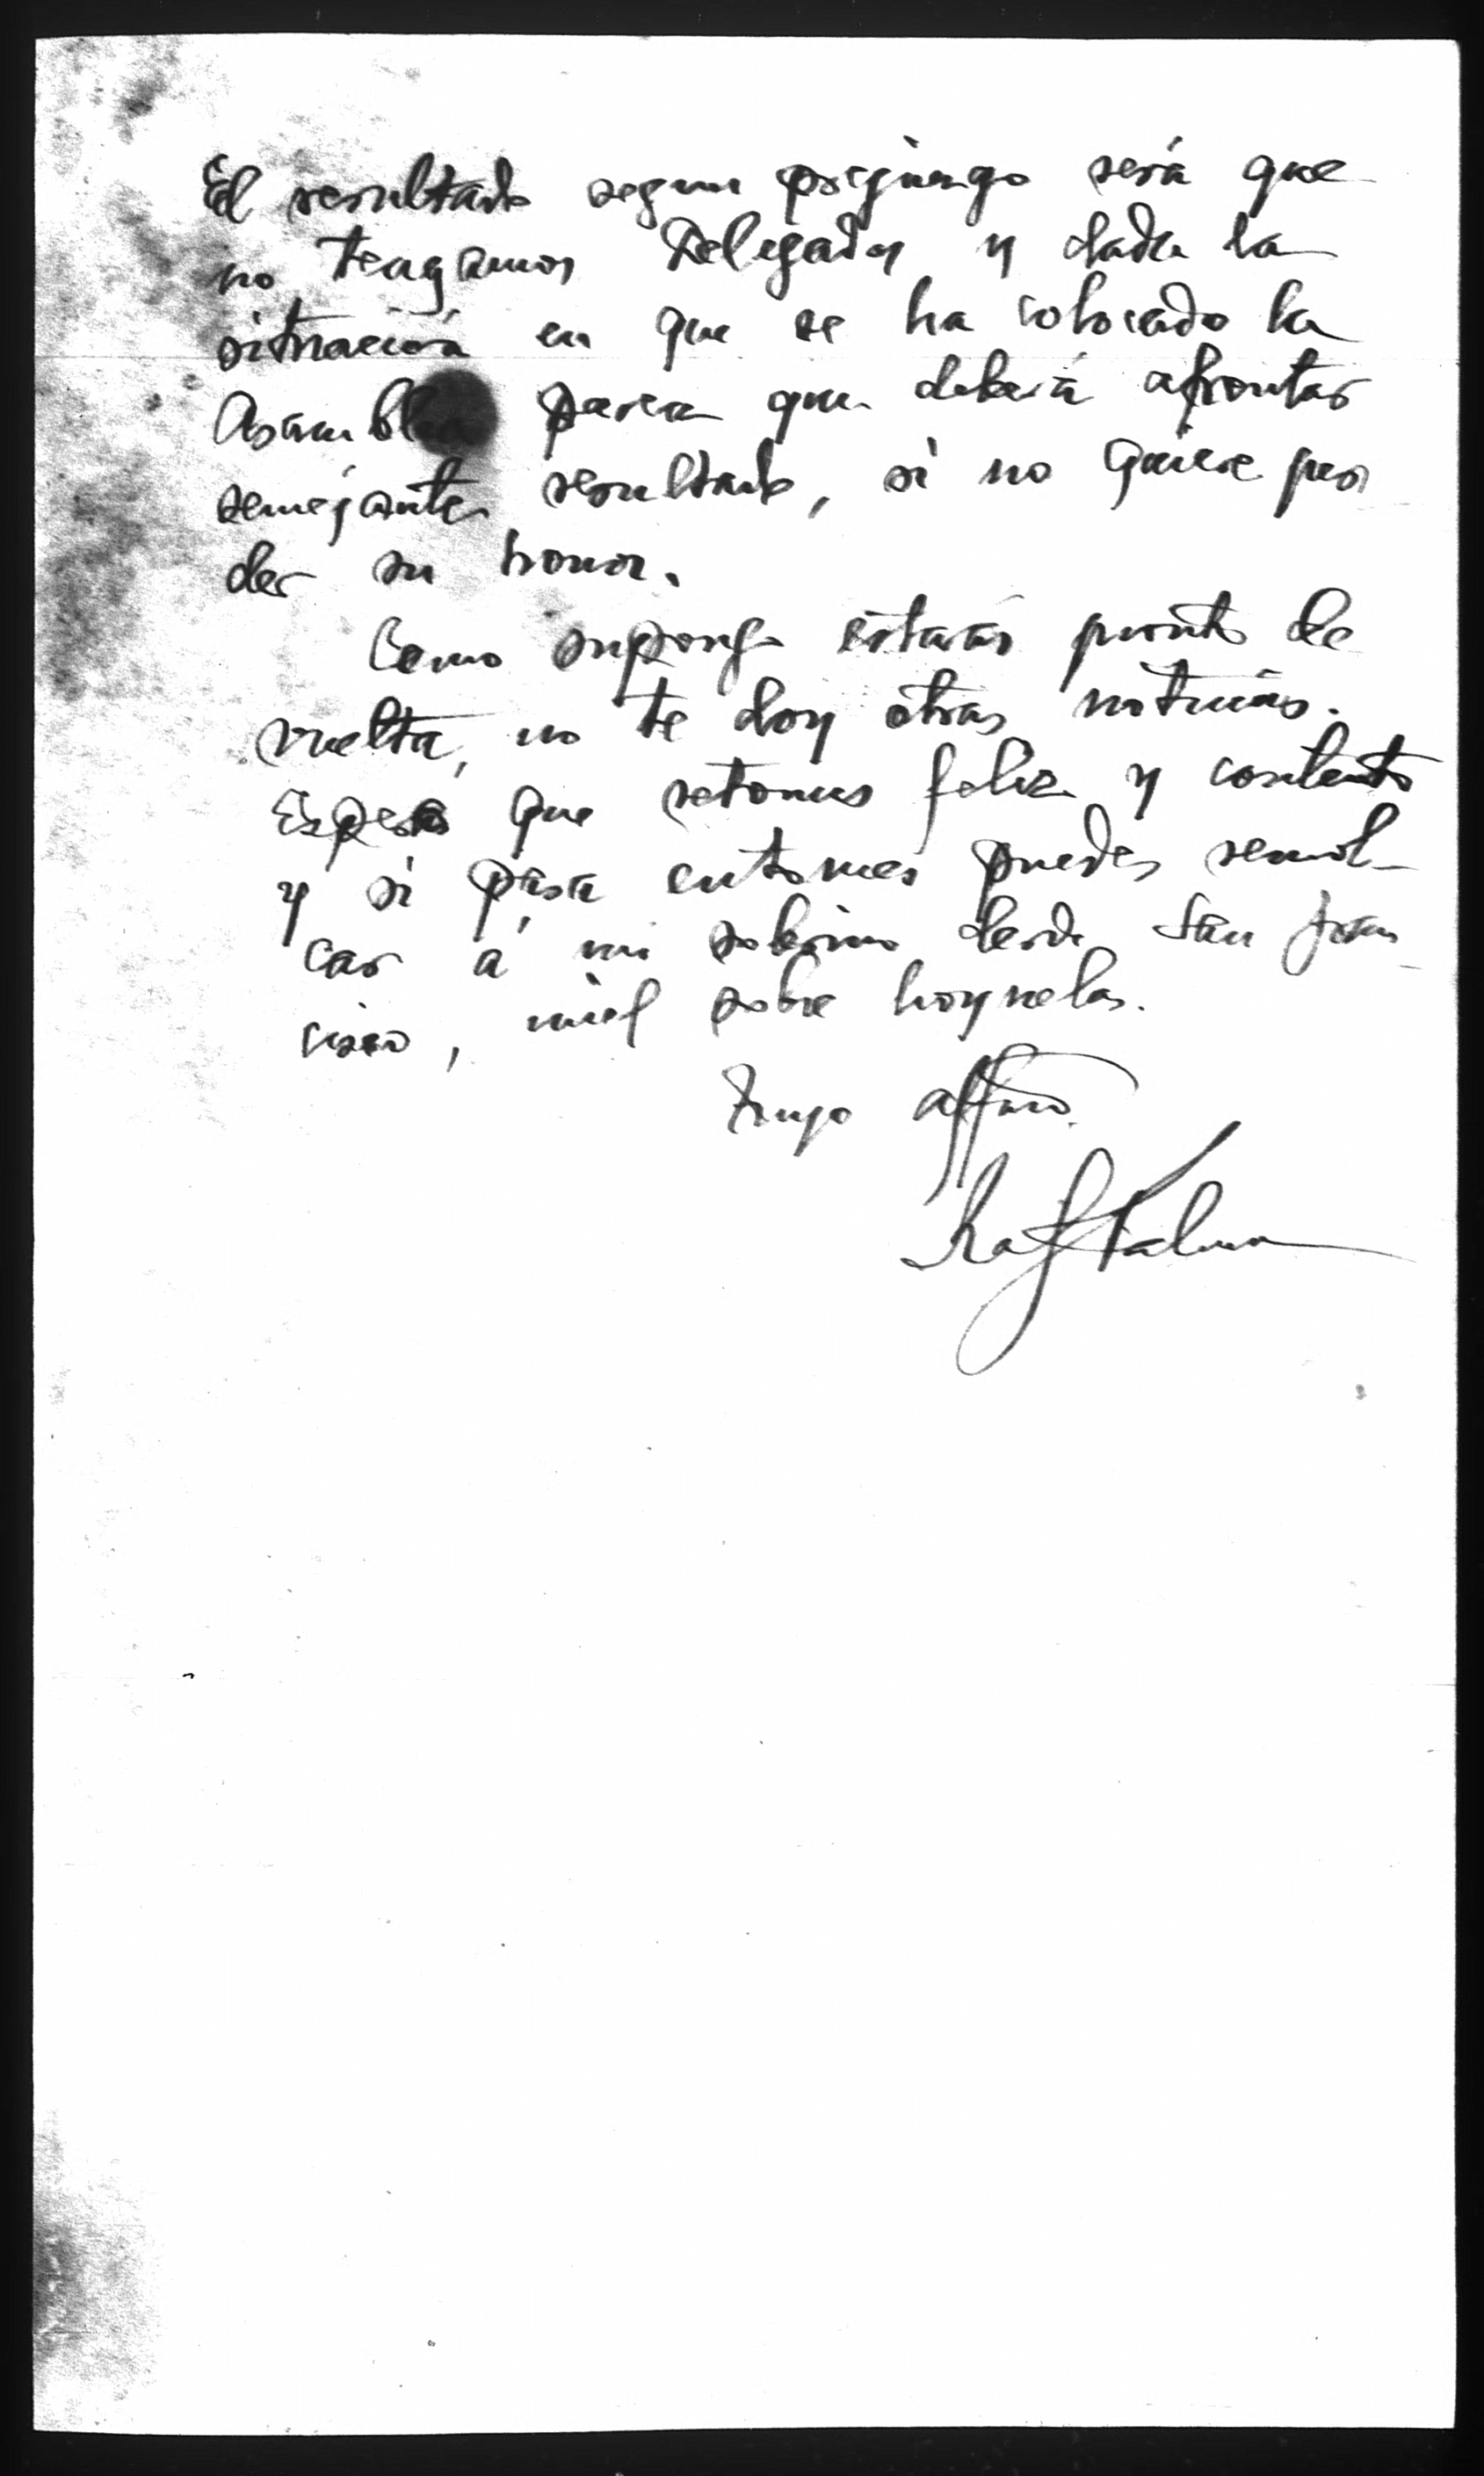 El resultado segun prejuzgo será que
no tengamos Delegados, y dada la
situación en que se ha colocado la
Asamblea parece que deberá afrontar
semejante resultado, si no quiere per
der su honor.
Como supongo estarás pronto de
vuelta, no te doy otras noticias.
Espero que retornes feliz y contento
y si para entonces puedes remol-
car á mi sobrino desde San Fran-
cisco, miel sobre hoynelas.
Tuyo affmo.
Raf Palma